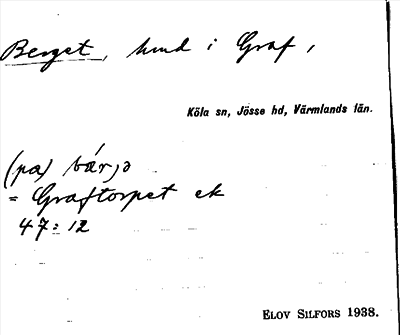 Berget, hmd i Graf,
Köla sn, Jösse hd, Värmlands län.
(pa) bárjə
= Graftorpet ek
47:12
ELOV SILFORS 1938.